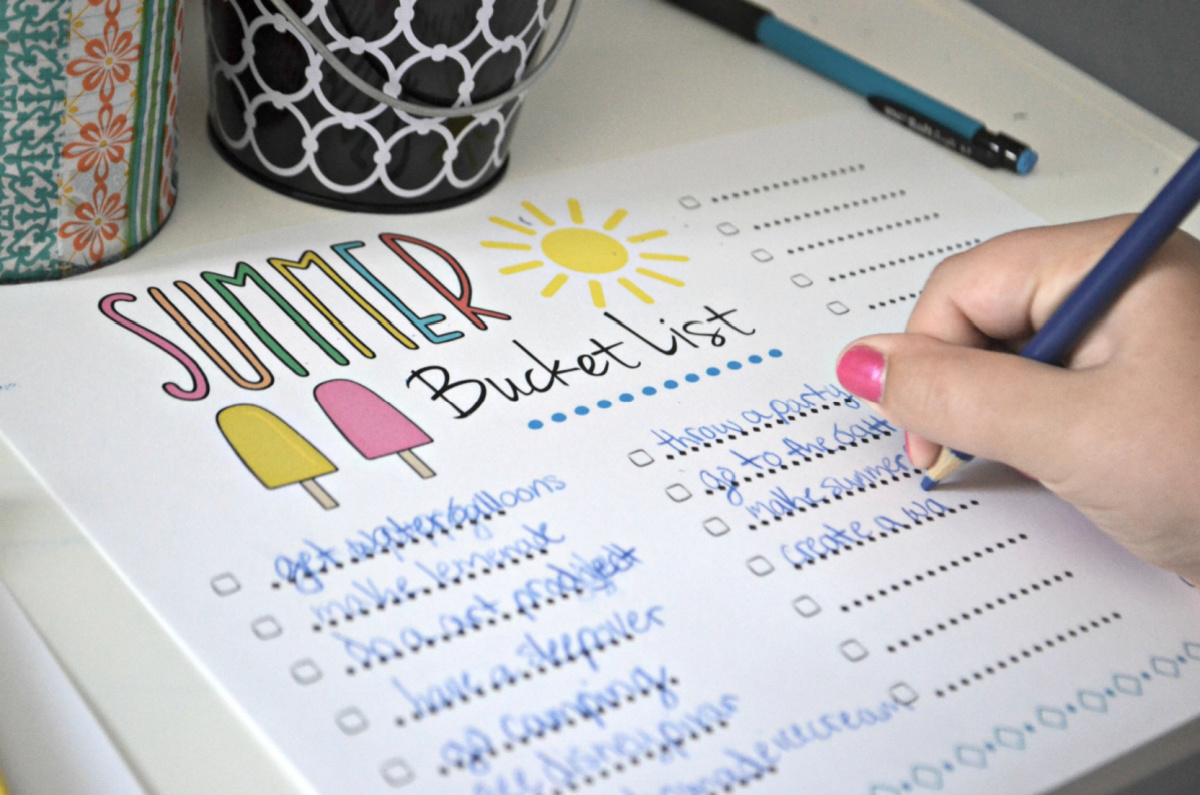 SUMMER
Bucket List
get water balloons
make lemonade
do a art project
have a sleepover
go camping
see disney pixar
made icecream
throw a party
go to the
make summer
create a wa